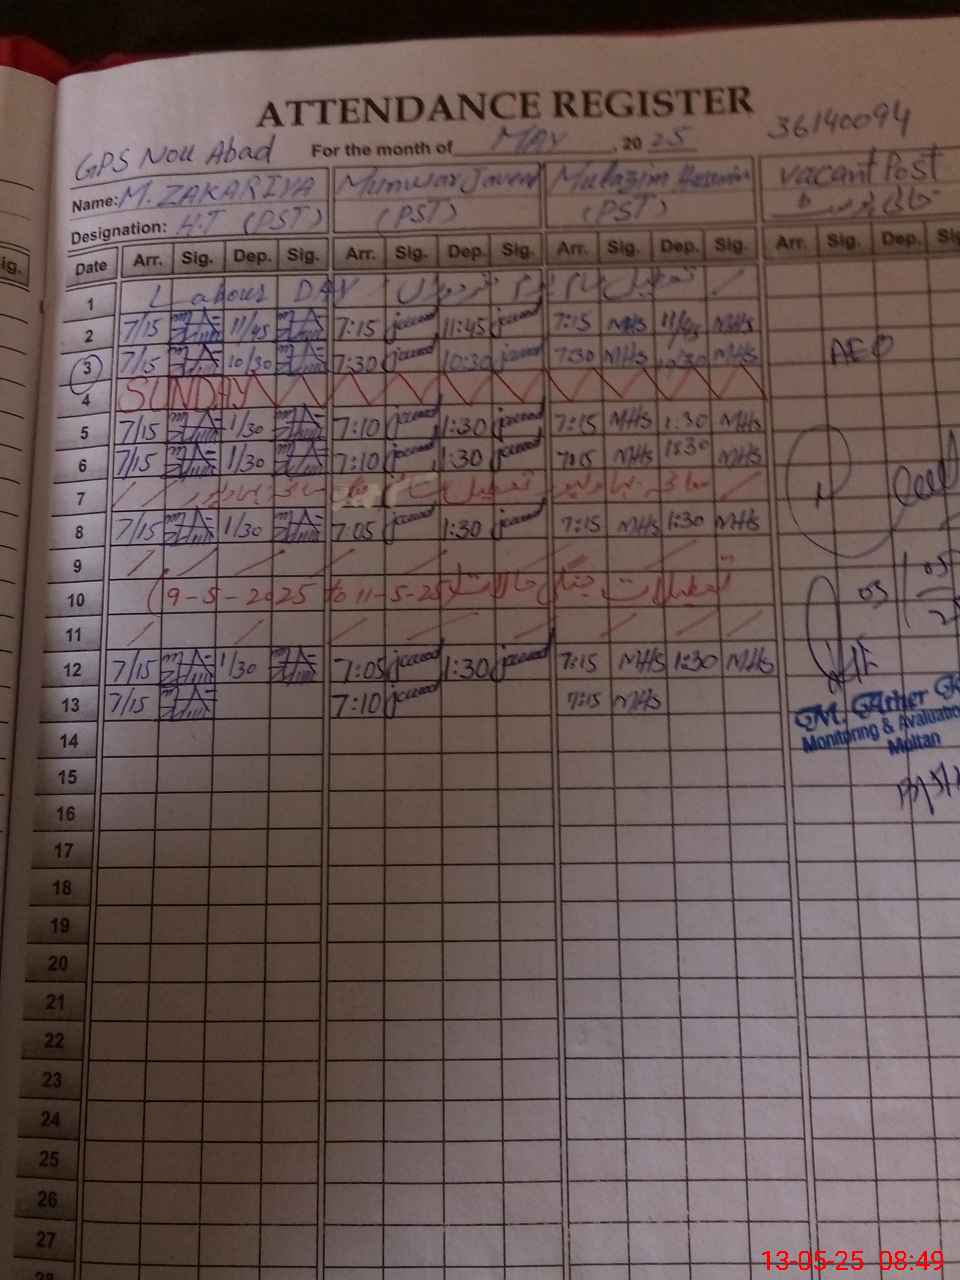 ATTENDANCE REGISTER
36140094
GPS Nou Abad For the month of MAY, 2025
Name: M. ZAKARIYA Munwar Javed Mulazim Hussain vacant Post
Designation: H.T (PST) (PST) (PST)
Date Arr. Sig. Dep. Sig. Arr. Sig. Dep. Sig. Arr. Sig. Dep. Sig. Arr. Sig. Dep.
1 Labour DAY
2 7/15 11/45 7:15 javed 11:45 javed 7:15 MHs 11/45 MHs
3 7/15 10/30 7:30 javed 10:30 javed 7:30 MHs 10:30 MHs AEO
4 SUNDAY
5 7/15 1/30 7:10 javed 1:30 javed 7:15 MHs 1:30 MHs
6 7/15 1/30 7:10 javed 1:30 javed 7:15 MHs 1:30 MHs
7
8 7/15 1/30 7:05 javed 1:30 javed 7:15 MHs 1:30 MHs
9
10 (9-5-2025 to 11-5-25) تعطیلات
05
11
12 7/15 1/30 7:05 javed 1:30 javed 7:15 MHs 1:30 MHs
13 7/15 7:10 javed 7:15 MHs
Monitoring & Evaluation
Multan
14
15
16
17
18
19
20
21
22
23
24
25
26
27
13-05-25 08:49